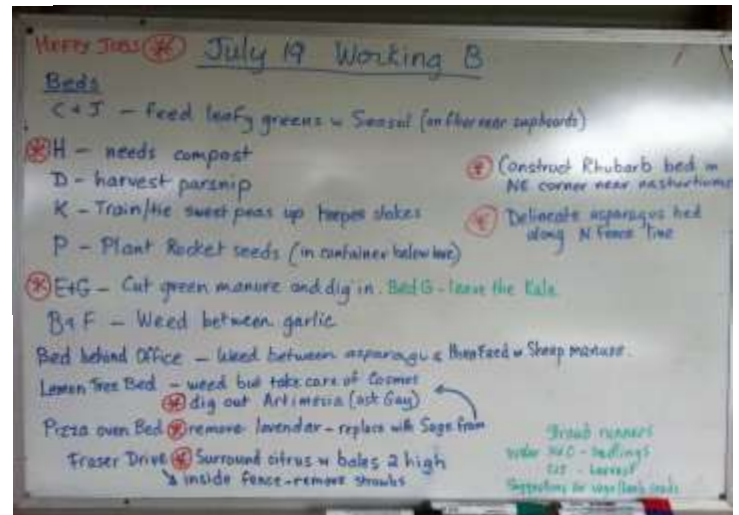 HEFTY JOBS * July 19 Working B
Beds
C + J – feed leafy greens w Seasol (on floor near cupboards)
* H – needs compost
D – harvest parsnip
K – Train/tie sweet peas up teepee stakes
P – Plant Rocket seeds (in container below)
* E+G – Cut green manure and dig in. Bed G – leave the Kale
B + F – Weed between garlic
Bed behind Office – Weed between asparagus then Feed w Sheep manure.
Lemon Tree Bed – weed but take care of Cosmos
* dig out Artimesia (ask Gay)
Pizza oven Bed * remove lavendar – replace with Sage from
Fraser Drive * Surround citrus w bales 2 high
inside fence – remove strawbs
* Construct Rhubarb bed in
NE corner near nasturtiums
* Delineate asparagus bed
along N Fence line
Strawb runners
- Seedlings
- harvest
Suggestions for seeds